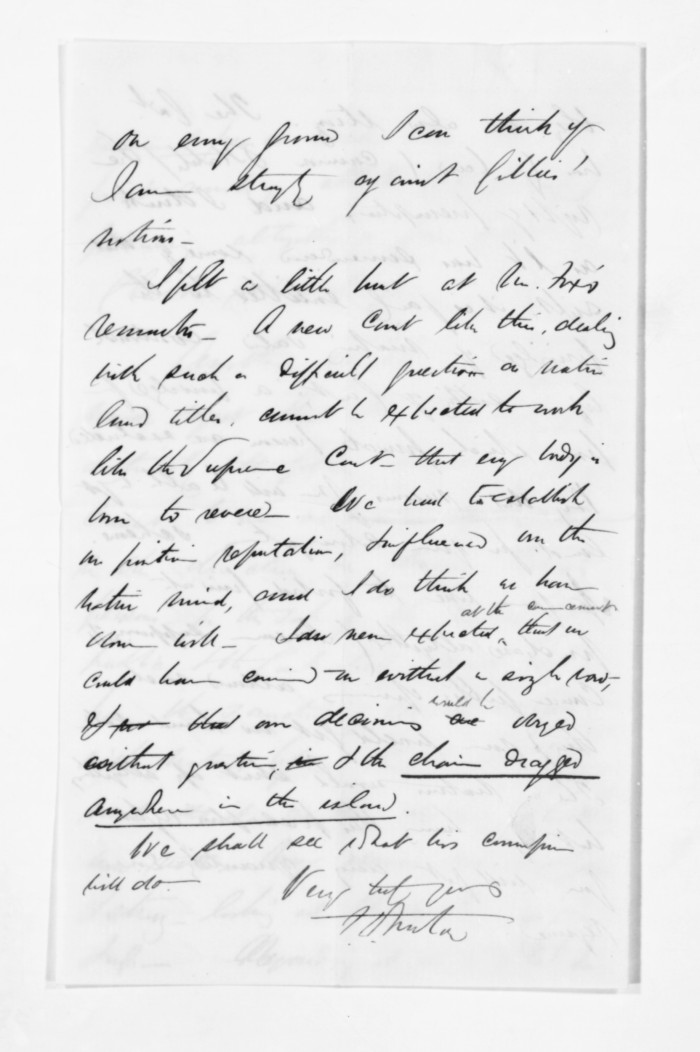 on every ground I can think of
I am strongly against Gillies'
notions—
I felt a little hurt at Mr. Fox's
remarks— A new Court like this, dealing
with such a difficult question as native
land titles, cannot be expected to work
like the Supreme Court— that every body is
born to revere— We had to establish
our position reputation, & influence over the
native mind, and I do think we have
done well— I never expected, at the commencement that we
could have carried on without a single row,
that our decisions would be obeyed
without question, & the chain dragged
anywhere in the island.
We shall see what his commission
will do—
Very truly yours